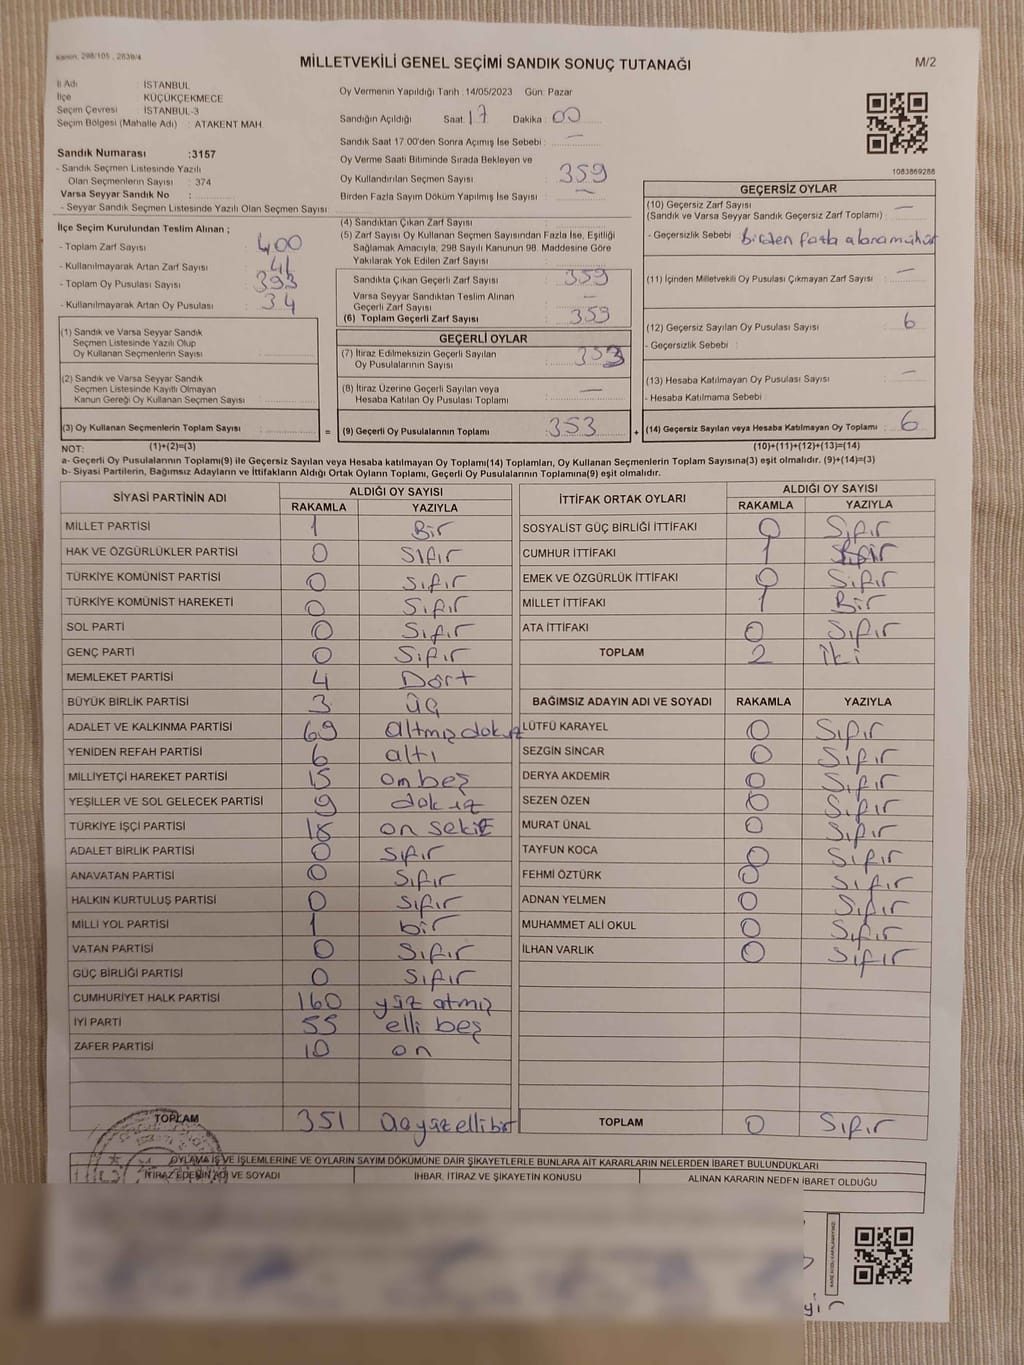 Kanun, 298/105 , 2839/4
MİLLETVEKİLİ GENEL SEÇİMİ SANDIK SONUÇ TUTANAĞI
M/2
İl Adı : İSTANBUL
İlçe : KÜÇÜKÇEKMECE
Seçim Çevresi : İSTANBUL-3
Seçim Bölgesi (Mahalle Adı) : ATAKENT MAH.
Sandık Numarası :3157
- Sandık Seçmen Listesinde Yazılı
Olan Seçmenlerin Sayısı : 374
Varsa Seyyar Sandık No :
- Seyyar Sandık Seçmen Listesinde Yazılı Olan Seçmen Sayısı :
İlçe Seçim Kurulundan Teslim Alınan ;
- Toplam Zarf Sayısı : 400
- Kullanılmayarak Artan Zarf Sayısı : 41
- Toplam Oy Pusulası Sayısı : 393
- Kullanılmayarak Artan Oy Pusulası : 34
(1) Sandık ve Varsa Seyyar Sandık
Seçmen Listesinde Yazılı Olup
Oy Kullanan Seçmenlerin Sayısı :
(2) Sandık ve Varsa Seyyar Sandık
Seçmen Listesinde Kayıtlı Olmayan
Kanun Gereği Oy Kullanan Seçmen Sayısı :
(3) Oy Kullanan Seçmenlerin Toplam Sayısı :
(1)+(2)=(3)
Oy Vermenin Yapıldığı Tarih :14/05/2023 Gün: Pazar
Sandığın Açıldığı Saat: 17 Dakika : 00
Sandık Saat 17.00'den Sonra Açımış İse Sebebi : —
Oy Verme Saati Bitiminde Sırada Bekleyen ve
Oy Kullandırılan Seçmen Sayısı : 359
Birden Fazla Sayım Döküm Yapılmış İse Sayısı : —
(4) Sandıktan Çıkan Zarf Sayısı :
(5) Zarf Sayısı Oy Kullanan Seçmen Sayısından Fazla İse, Eşitliği
Sağlamak Amacıyla, 298 Sayılı Kanunun 98. Maddesine Göre
Yakılarak Yok Edilen Zarf Sayısı :
Sandıkta Çıkan Geçerli Zarf Sayısı : 359
Varsa Seyyar Sandıktan Teslim Alınan
Geçerli Zarf Sayısı : —
(6) Toplam Geçerli Zarf Sayısı : 359
GEÇERLİ OYLAR
(7) İtiraz Edilmeksizin Geçerli Sayılan
Oy Pusulalarının Sayısı : 353
(8) İtiraz Üzerine Geçerli Sayılan veya
Hesaba Katılan Oy Pusulası Toplamı : —
= (9) Geçerli Oy Pusulalarının Toplamı : 353
1083869288
GEÇERSİZ OYLAR
(10) Geçersiz Zarf Sayısı : —
(Sandık ve Varsa Seyyar Sandık Geçersiz Zarf Toplamı)
- Geçersizlik Sebebi : birden fazla alana mühür
(11) İçinden Milletvekili Oy Pusulası Çıkmayan Zarf Sayısı : —
(12) Geçersiz Sayılan Oy Pusulası Sayısı : 6
- Geçersizlik Sebebi :
(13) Hesaba Katılmayan Oy Pusulası Sayısı : —
- Hesaba Katılmama Sebebi :
+ (14) Geçersiz Sayılan veya Hesaba Katılmayan Oy Toplamı : 6
(10)+(11)+(12)+(13)=(14)
NOT:
a- Geçerli Oy Pusulalarının Toplamı(9) ile Geçersiz Sayılan veya Hesaba katılmayan Oy Toplamı(14) Toplamları, Oy Kullanan Seçmenlerin Toplam Sayısına(3) eşit olmalıdır. (9)+(14)=(3)
b- Siyasi Partilerin, Bağımsız Adayların ve İttifakların Aldığı Ortak Oyların Toplamı, Geçerli Oy Pusulalarının Toplamına(9) eşit olmalıdır.
SİYASİ PARTİNİN ADI ALDIĞI OY SAYISI
RAKAMLA YAZIYLA
MİLLET PARTİSİ 1 Bir
HAK VE ÖZGÜRLÜKLER PARTİSİ 0 Sıfır
TÜRKİYE KOMÜNİST PARTİSİ 0 Sıfır
TÜRKİYE KOMÜNİST HAREKETİ 0 Sıfır
SOL PARTİ 0 Sıfır
GENÇ PARTİ 0 Sıfır
MEMLEKET PARTİSİ 4 Dört
BÜYÜK BİRLİK PARTİSİ 3 üç
ADALET VE KALKINMA PARTİSİ 69 altmış dokuz
YENİDEN REFAH PARTİSİ 6 altı
MİLLİYETÇİ HAREKET PARTİSİ 15 on beş
YEŞİLLER VE SOL GELECEK PARTİSİ 9 dokuz
TÜRKİYE İŞÇİ PARTİSİ 18 on sekiz
ADALET BİRLİK PARTİSİ 0 Sıfır
ANAVATAN PARTİSİ 0 Sıfır
HALKIN KURTULUŞ PARTİSİ 0 Sıfır
MİLLİ YOL PARTİSİ 1 bir
VATAN PARTİSİ 0 Sıfır
GÜÇ BİRLİĞİ PARTİSİ 0 Sıfır
CUMHURİYET HALK PARTİSİ 160 yüz atmış
İYİ PARTİ 55 elli beş
ZAFER PARTİSİ 10 on
TOPLAM 351 üçyüzellibir
İTTİFAK ORTAK OYLARI ALDIĞI OY SAYISI
RAKAMLA YAZIYLA
SOSYALİST GÜÇ BİRLİĞİ İTTİFAKI 0 Sıfır
CUMHUR İTTİFAKI 1 Bir
EMEK VE ÖZGÜRLÜK İTTİFAKI 0 Sıfır
MİLLET İTTİFAKI 1 Bir
ATA İTTİFAKI 0 Sıfır
TOPLAM 2 İki
BAĞIMSIZ ADAYIN ADI VE SOYADI RAKAMLA YAZIYLA
LÜTFÜ KARAYEL 0 Sıfır
SEZGİN SİNCAR 0 Sıfır
DERYA AKDEMİR 0 Sıfır
SEZEN ÖZEN 0 Sıfır
MURAT ÜNAL 0 Sıfır
TAYFUN KOCA 0 Sıfır
FEHMİ ÖZTÜRK 0 Sıfır
ADNAN YELMEN 0 Sıfır
MUHAMMET ALİ OKUL 0 Sıfır
İLHAN VARLIK 0 Sıfır
TOPLAM 0 Sıfır
OYLAMA İŞ VE İŞLEMLERİNE VE OYLARIN SAYIM DÖKÜMÜNE DAİR ŞİKAYETLERLE BUNLARA AİT KARARLARIN NELERDEN İBARET BULUNDUKLARI
İTİRAZ EDENİN ADI VE SOYADI İHBAR, İTİRAZ VE ŞİKAYETİN KONUSU ALINAN KARARIN NEDEN İBARET OLDUĞU